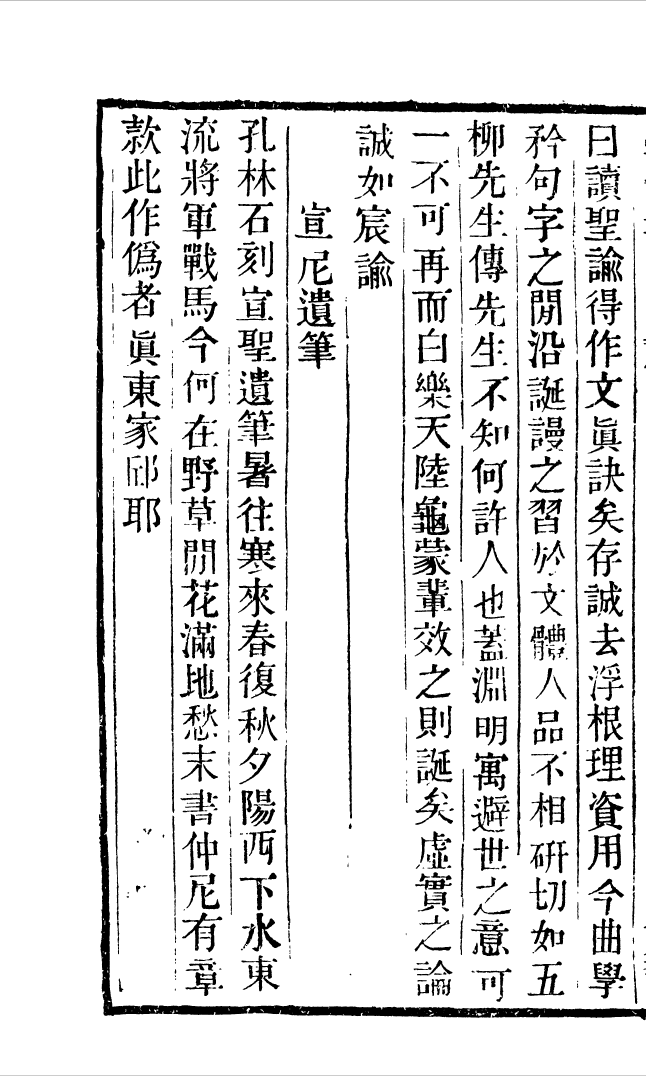 曰讀聖諭得作文眞訣矣存誠去浮根理資用今曲學
矜句字之閒沿誕謾之習於文體人品不相硏切如五
柳先生傳先生不知何許人也蓋淵明寓避世之意可
一不可再而白樂天陸龜蒙輩效之則誕矣虛實之論
誠如宸諭
宣尼遺筆
孔林石刻宣聖遺筆暑往寒來春復秋夕陽西下水東
流將軍戰馬今何在野草閒花滿地愁末書仲尼有章
款此作僞者眞東家邱耶